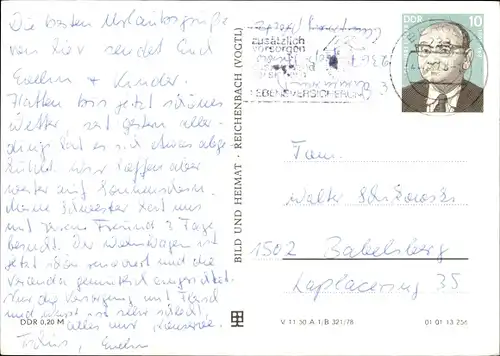 Die besten Urlaubsgrüße
von hier sendet Euch
Evelin + Kinder.
Hatten bis jetzt schönes
Wetter, seit gestern aller-
dings hat es sich etwas abge-
kühlt. Wir hoffen aber
weiter auf Sonnenschein.
Meine Schwester hat uns
mit ihrem Freund 2 Tage
besucht. Der Wohnwagen ist
jetzt schön renoviert und die
Veranda gemütlich eingerichtet.
Nur die Versorgung mit Fleisch
und Wurst ist sehr schlecht,
alles nur Konserve.
Tschüs, Evelin
DDR 0,20 M
BILD UND HEIMAT · REICHENBACH (VOGTL)
zusätzlich
vorsorgen
LEBENSVERSICHERUNG
DDR 10
Fam.
Walter
1502 Babelsberg
Laplacering 35
V 11 50 A 1/B 321/78 01 01 13 256